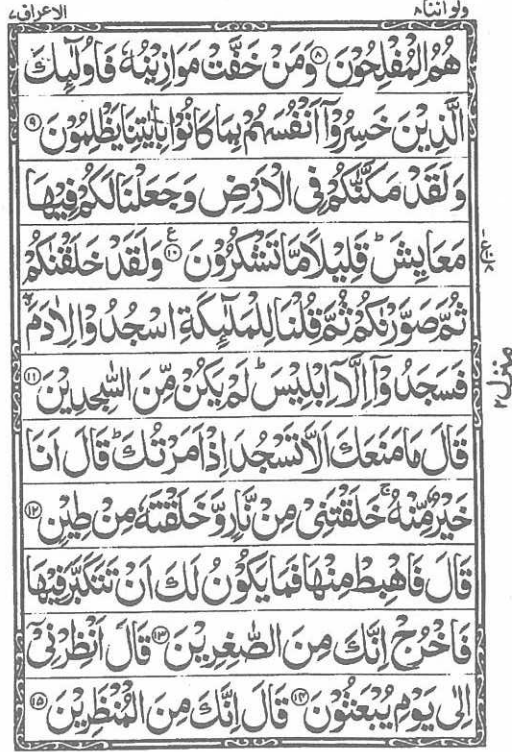 ولو اننا ۸
الاعراف ۷
هُمُ الْمُفْلِحُوْنَ ۸ وَمَنْ خَفَّتْ مَوَازِيْنُهٗ فَاُولٰٓئِكَ
الَّذِيْنَ خَسِرُوْٓا اَنْفُسَهُمْ بِمَا كَانُوْا بِاٰيٰتِنَا يَظْلِمُوْنَ ۹
وَلَقَدْ مَكَّنّٰكُمْ فِى الْاَرْضِ وَجَعَلْنَا لَكُمْ فِيْهَا
مَعَايِشَ ؕ قَلِيْلًا مَّا تَشْكُرُوْنَ ۱۰ ع وَلَقَدْ خَلَقْنٰكُمْ
ثُمَّ صَوَّرْنٰكُمْ ثُمَّ قُلْنَا لِلْمَلٰٓئِكَةِ اسْجُدُوْا لِاٰدَمَ
فَسَجَدُوْٓا اِلَّآ اِبْلِيْسَ ؕ لَمْ يَكُنْ مِّنَ السّٰجِدِيْنَ ۱۱
قَالَ مَا مَنَعَكَ اَلَّا تَسْجُدَ اِذْ اَمَرْتُكَ ؕ قَالَ اَنَا
خَيْرٌ مِّنْهُ ۚ خَلَقْتَنِىْ مِنْ نَّارٍ وَّخَلَقْتَهٗ مِنْ طِيْنٍ ۱۲
قَالَ فَاهْبِطْ مِنْهَا فَمَا يَكُوْنُ لَكَ اَنْ تَتَكَبَّرَ فِيْهَا
فَاخْرُجْ اِنَّكَ مِنَ الصّٰغِرِيْنَ ۱۳ قَالَ اَنْظِرْنِىْٓ
اِلٰى يَوْمِ يُبْعَثُوْنَ ۱۴ قَالَ اِنَّكَ مِنَ الْمُنْظَرِيْنَ ۱۵
منزل ۲